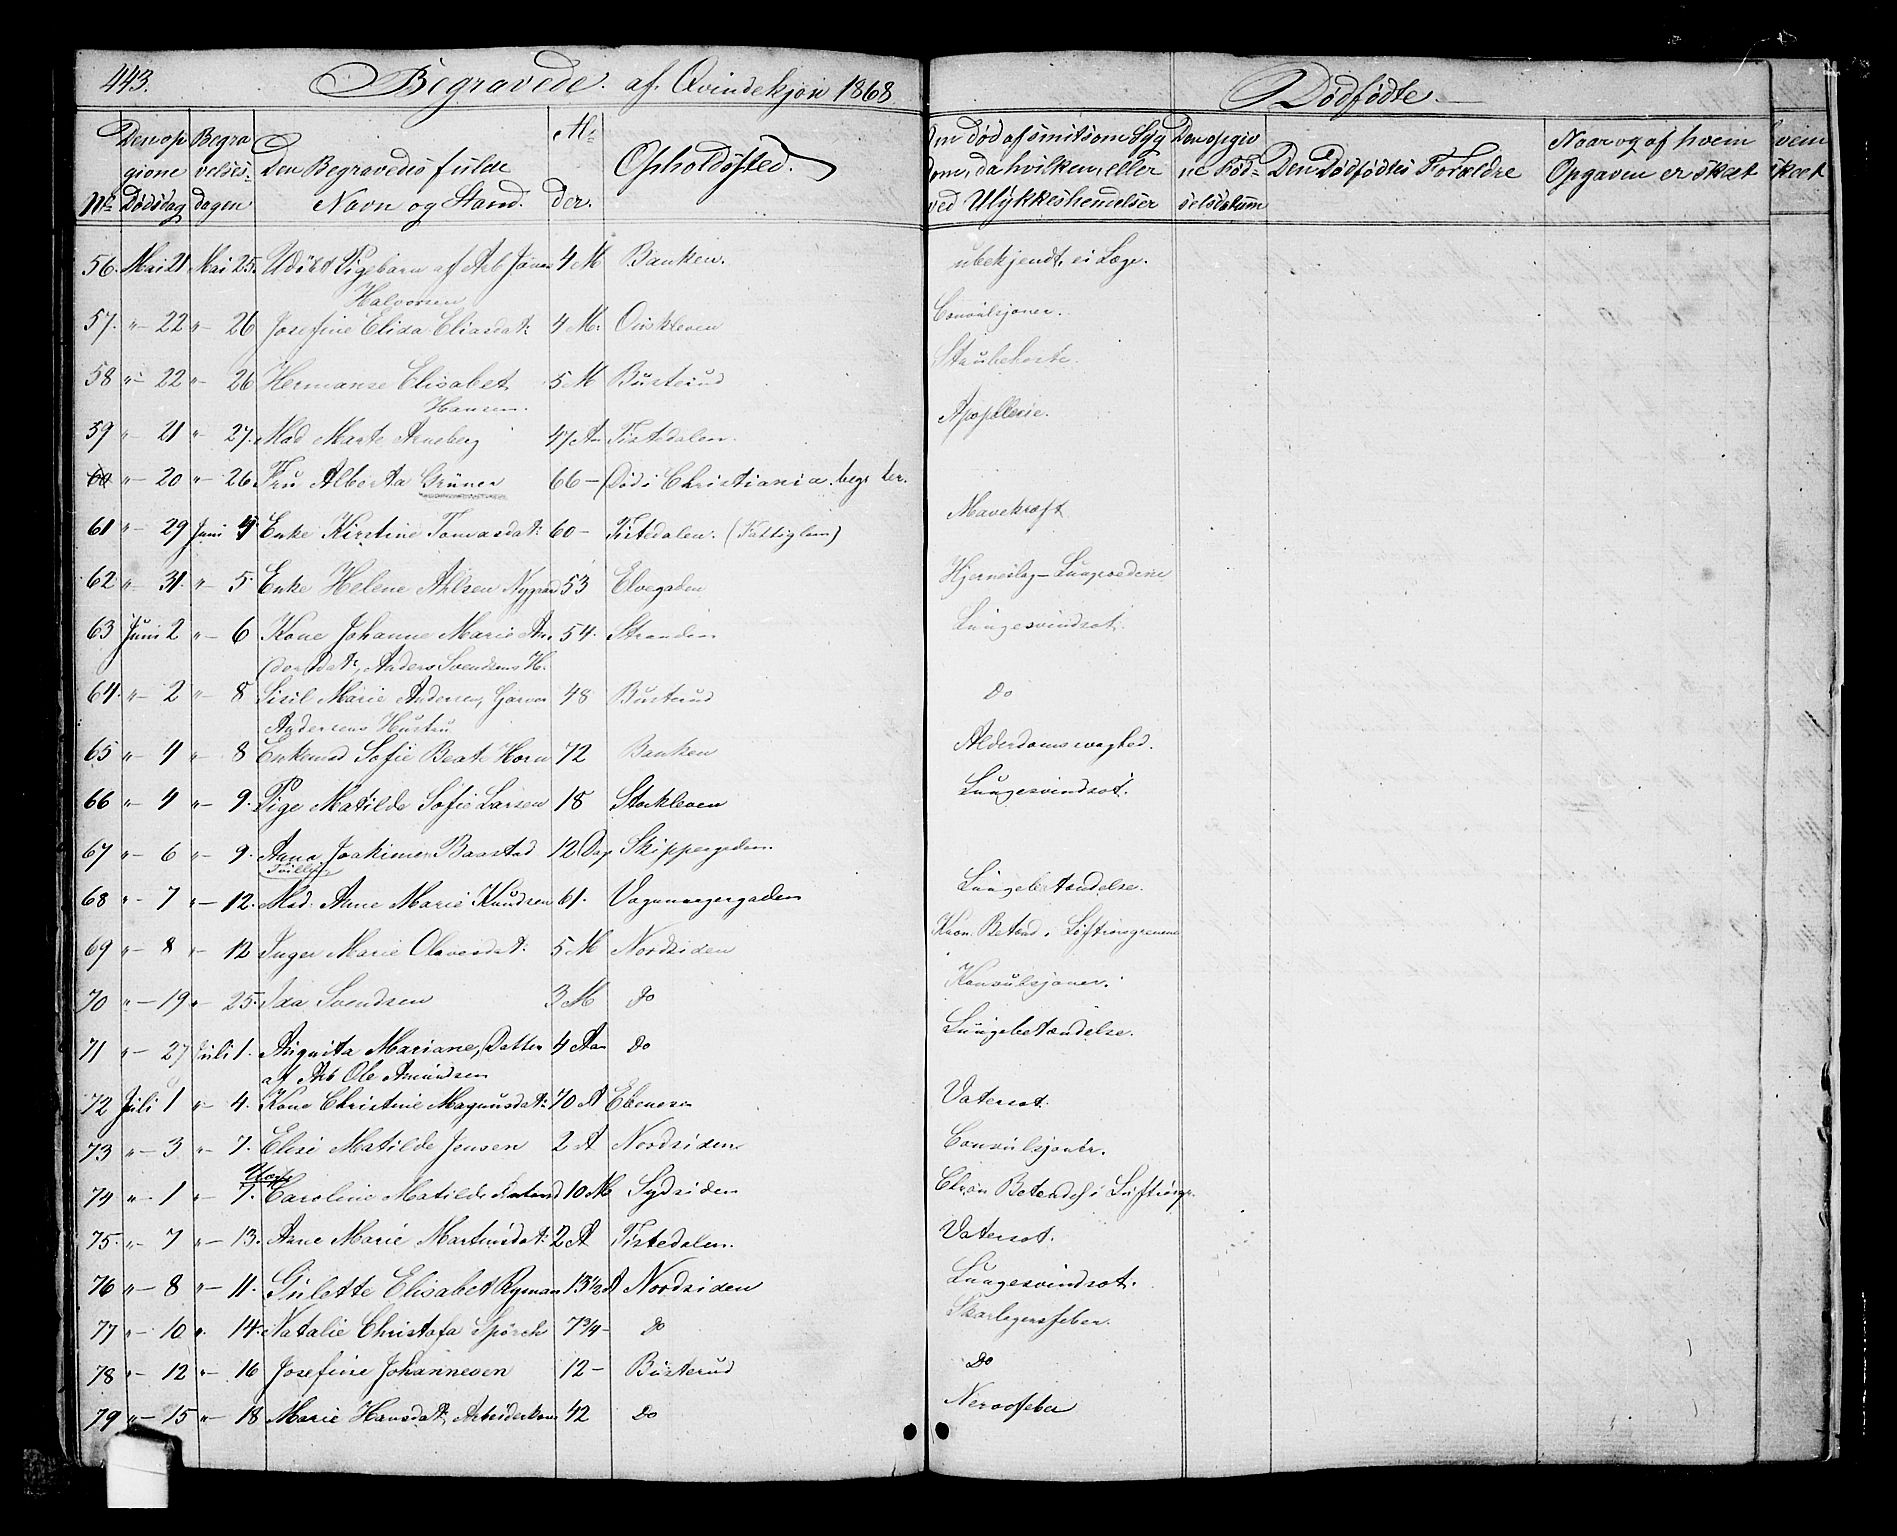 443. Begravede af Qvindekjøn 1868 Dødfødte.
Nr. Den op gione Dødsdag Begra velses- dagen Den Begravedes fulde Navn og Stand. Al- der. Opholdssted. Om død af smitsom Syg dom, da hvilken, eller ved Ulykkeshendelser Den opgiv ne Fød- selsdatum Den Dødfødtes Forældre Naar og af hvem Opgaven er skeet
56. Mai 21 Mai 25. Udøbt Pigebarn af Arb Johan 4 M Banken. ubekjendt, ei Læge.
Halvorsen
57. " 22 " 26 Josefine Elisa Eliasdat: 4 M. Convulsjoner.
58 " 22 " 26 Hermanse Elisabet 5 M Busterud Stubehoste.
Hansen.
59 " 21 " 27. Mad Marte Arneberg 47 Aar Tistedalen. Apoplexie.
60 " 20 " 26 Fru Alberta Grüner 66 - (Død i Christiania. begr her.
61 " 29 Juni 4 Enke Kirstine Tomasdat: 60 - Tistedalen. (Fattiglem) Mavekræft
62. " 31. " 5. Enke Helene Ahlsen 53 Elvegaden Hjerneslag -
63 Juni 2 " 6 Kone Johanne Marie An 54. Stranden Lungesvindsot.
dorsdat, Anders Svendsens H.
64. " 2 " 8 Sisil Marie Andersen, 48 Busterud Do
Andersens Hustru
65 " 4 " 8 Enkemad Sofie Beate Horn 72 Banken Alderdomssvaghed.
66 " 4 " 9. Pige Matilde Sofie Larsen 18 Stenkleven Lungesvindsot.
67 " 6 " 9. Anna Joakimen Baastad 12 Dag Skippergaden
Tvilling
68 " 7 " 12. Mad. Anne Marie Knudsen 61. Vognmagergaden Lungebetændelse.
69 " 8 " 12 Inger Marie Olavesdat: 5 M Nordsiden Kron. Betænd. i Luftrørsgrenene
70 " 19 " 25. Ida Svendsen 3 M Do Konvulsjoner.
71 " 27 Juli 1. Augusta Mariane, Datter 4 Aar Do Lungebetændelse.
af Arb Ole Amundsen
72 Juli 1 " 4. Kone Christine Magnusdat: 70 A Ebeneser Vatersot.
73 " 3 " 7. Elise Matilde Jensen 2 A Nordsiden Convulsjoner.
74 " 1 " 7. Caroline Matilde 10 M Sydsiden Chron Betændels i Luftrørgr.
75. " 7 " 13. Anne Marie Martinsdat: 2 A Tistedalen. Vatersot.
76 " 8 " 11. Gulette Elisabet Ryman 13½ A Nordsiden Lungesvindsot.
77 " 10 " 14. Natalie Christofa Spörck 7¾ - Do Skarlagensfeber.
78 " 12 " 16 Josefine Johannesen 12 - Busterud Do
79 " 15 " 18 Marie Hansdat, Arbeiderkone 42 Do Nervefeber